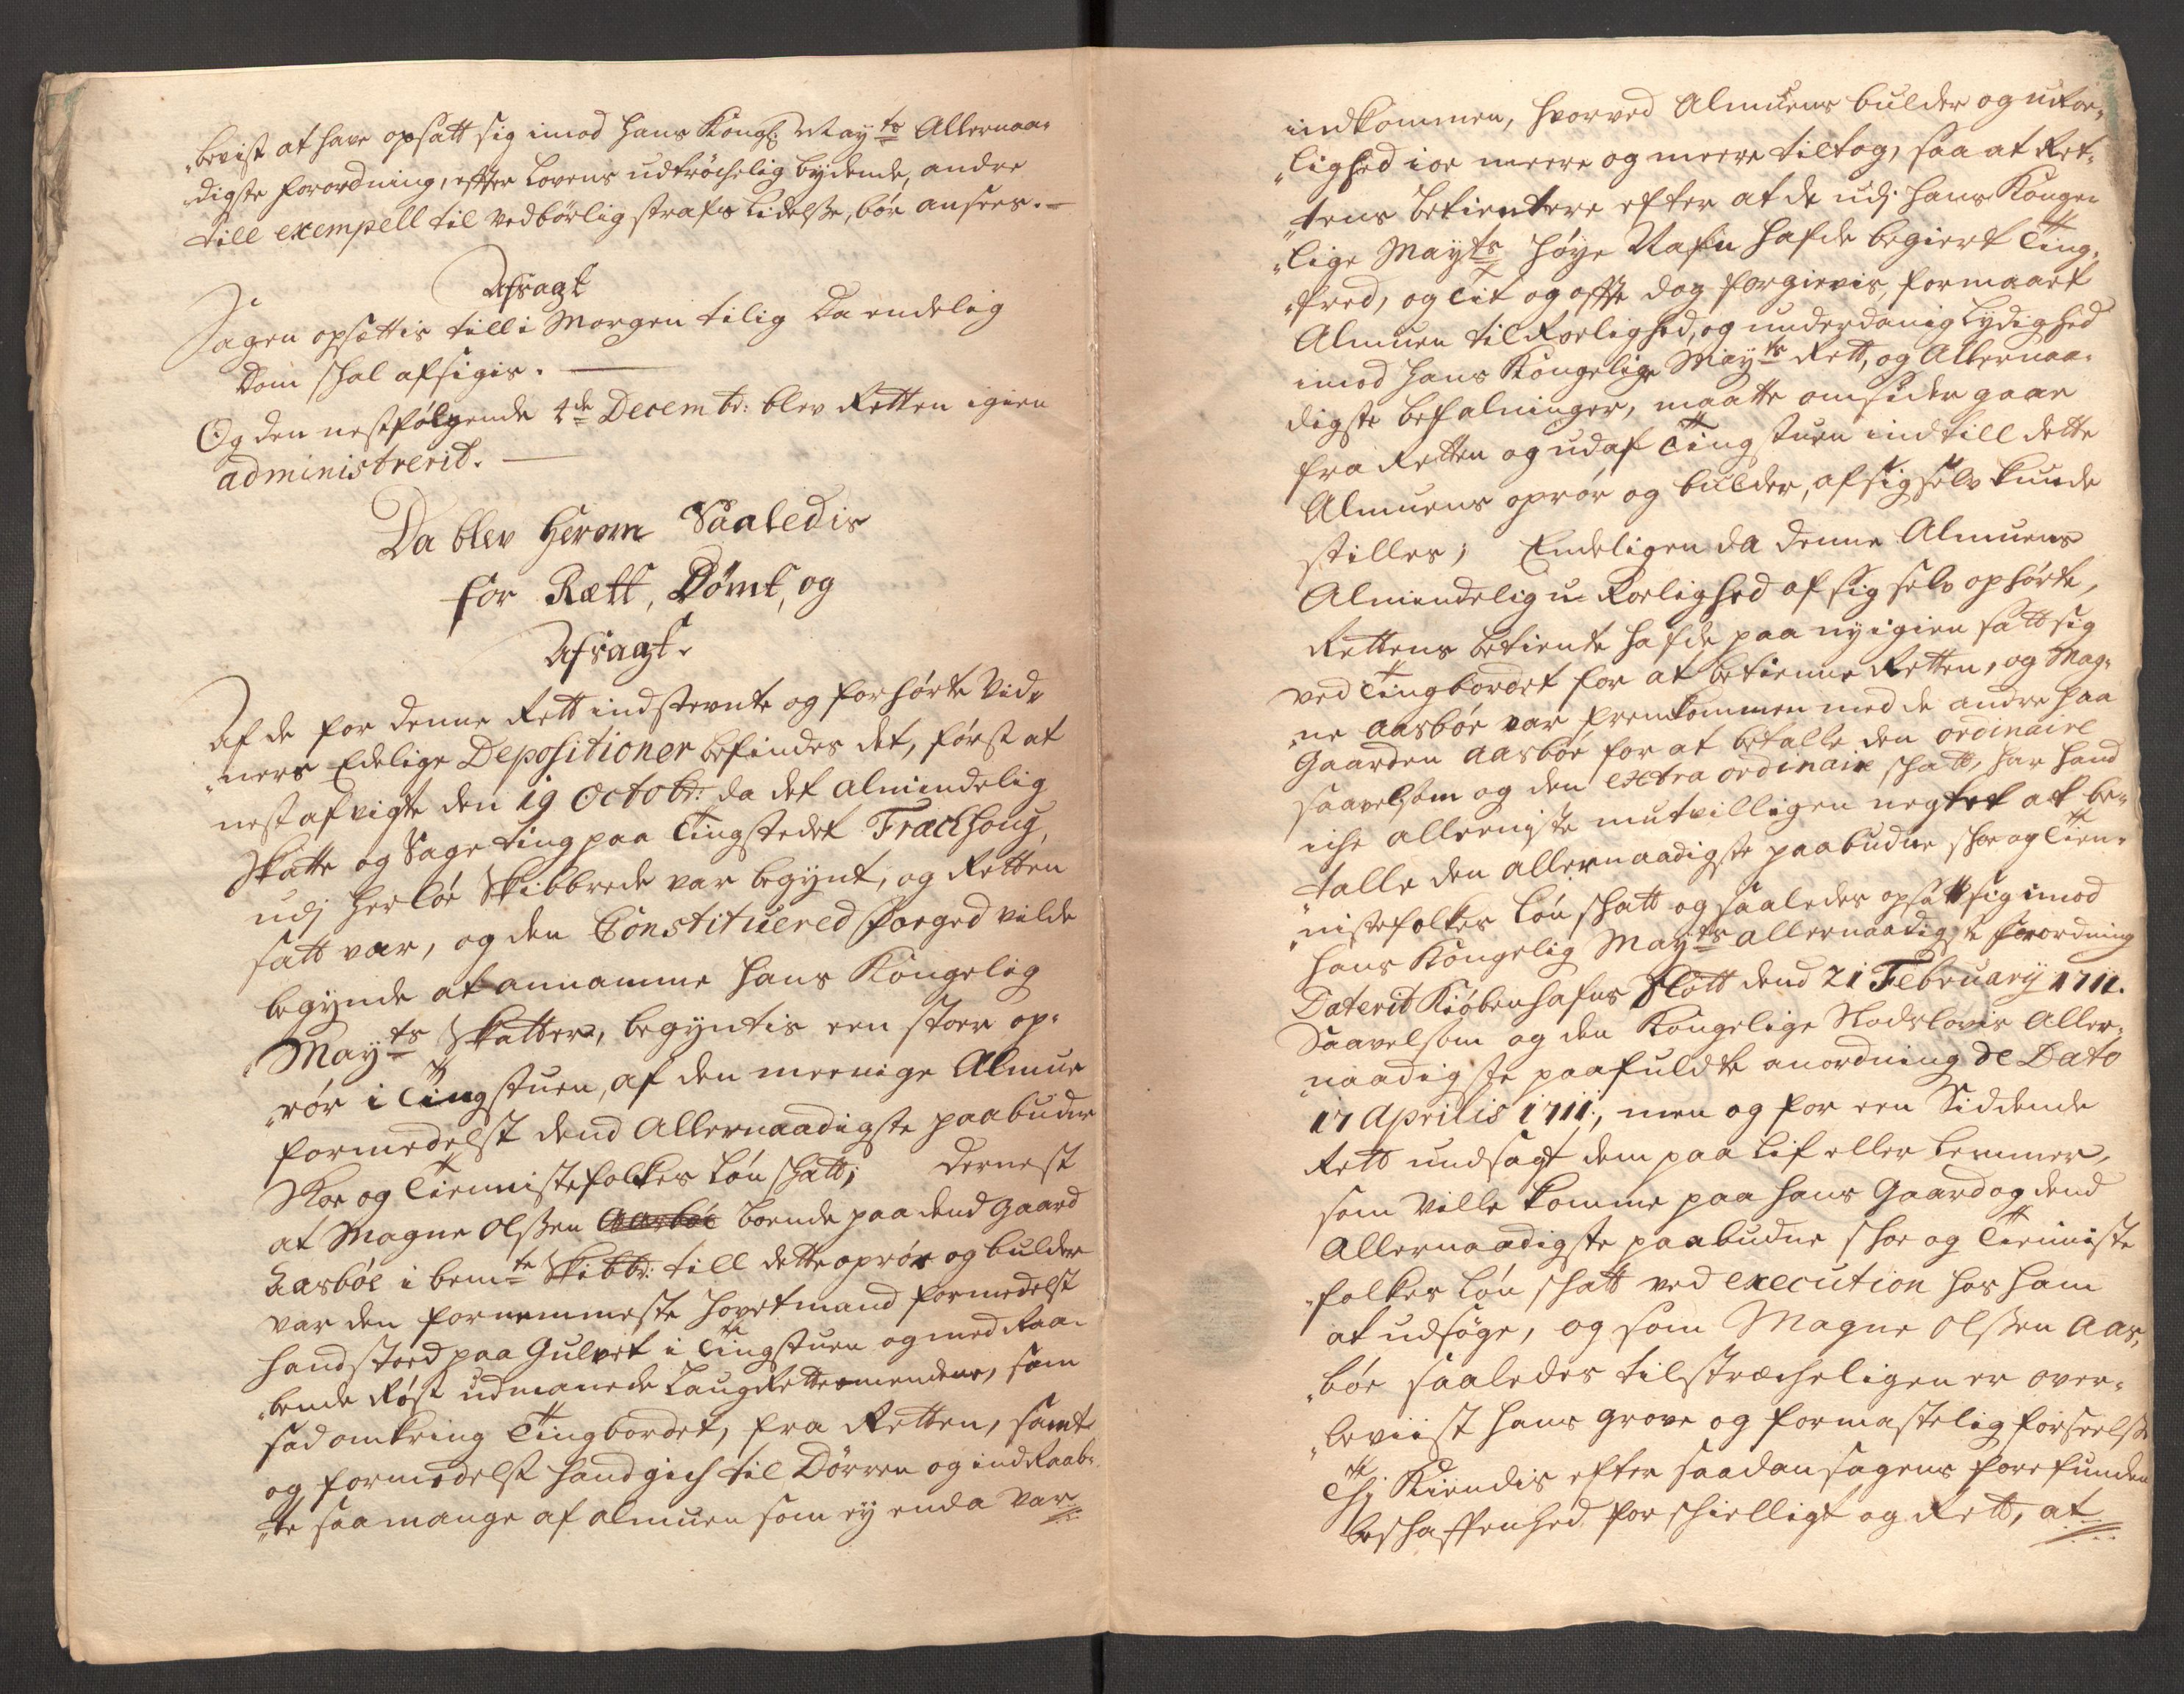 „bevist at have opsatt sig imod Hans Kongl: Mayts Allernaa„
digste forordning, efter Lovens udtrøchelig bydende, andre
till exempell til vedbørlig strafs Lidelsse, bør ansees. —
Afsagt
Sagen opsættis till i Morgen tilig Da endelig
Dom schal afsigis. —
Og den nestfølgende 4de Decembr: blev Retten igien
administrerit. —
Da blev Herom Saaledis
for Rætt, Dømt, og
Afsagt.
Af de for denne Rett indstevnte og forhørte Vid„
„ners Edelige Depositioner befindes det, først at
nest afvigte den 19 Octobr: da det almindelig
Skatte og Sage ting paa Tingstedet Fræchhoug,
udj Herløe Skibbrede var begynt, og Retten
satt var, og den Constituered foeged vilde
begynde at annamme Hans Kongelig
Mayts Skatter, begyntis een stoer op„
„rør i Tingstuen, af den meenige Almue
formedelst dend Allernaadigste paabudne
Skoe og Tiennistefolkes Løn schatt; dernest
at Magne Olssen Aarbøe boende paa dend gaard
Aasbøe i bemte Skibbr: till dette oprør og bulder
var den fornemmeste Hovetmand formedelst
hand stoed paa Gulvet i Tingstuen og med Raa„
„bende Røst udmanede LaugRettesmendene, som
sad omkring Tingbordet, fra Retten, samt
og formedelst hand gich til Dørren og indRaab„
„te saa mange af almuen som ey enda var
indkommen, hvorved Almuens bulder og uroe„
„lighed ioe meere og meere tiltog, saa at Ret„
„tens betientere efter at de udj Hans Konge„
„lige Mayts Høye Nafn hafde begiert Ting„
„fred, og tit og offte dog forgievis, formaant
Almuen til Roelighed, og underdanig Lydighed
imod Hans Kongelige Mayts Rett, og Allernaa„
digste befalninger, maatte omsider gaae
fra Retten og ud af Tingstuen ind till dette
Almuens oprør og bulder, af sig selv kunde
stilles; Endeligen da denne Almuens
Almindelig u-Roelighed af sig selv ophørte,
Rettens betiente hafde paa ny igien satt sig
ved Tingbordet for at betienne Retten, og Mag„
„ne Aasbøe var fremkommen med de andre paa
Gaarden Aasbøe for at betalle den ordinaire
saavelsom og den extra ordinaire schatt, har hand
iche alleeniste mutvilligen negtet at be„
„talle den allernaadigste paabudne schoe og Tien„
„nistefolkes Løn schatt og saaledes opsatt sig imod
Hans Kongelig Mayts allernaadigste forordning
Daterit Kiøbenhafns Slott dend 21 February 1711.
Saavelsom og den Kongelige Slodslovis Aller„
„naadigste paafuldte anordning de Dato
17 Aprilis 1711:, men og for een Siddende
Rett undsagt dem paa Lif eller Lemmer,
som ville komme paa hans Gaard og dend
Allernaadigste paabudne schoe og Tienniste
„folkes Løn schatt ved execution hos ham
at udsøge, og som Magne Olssen Aas„
„bøe saaledes tilstræcheligen er over„
„beviist hans grove og formastelig forseelsse
Thj Kiendis efter saadan sagens forefunden
beschaffenhed for schielligt og Rett, at